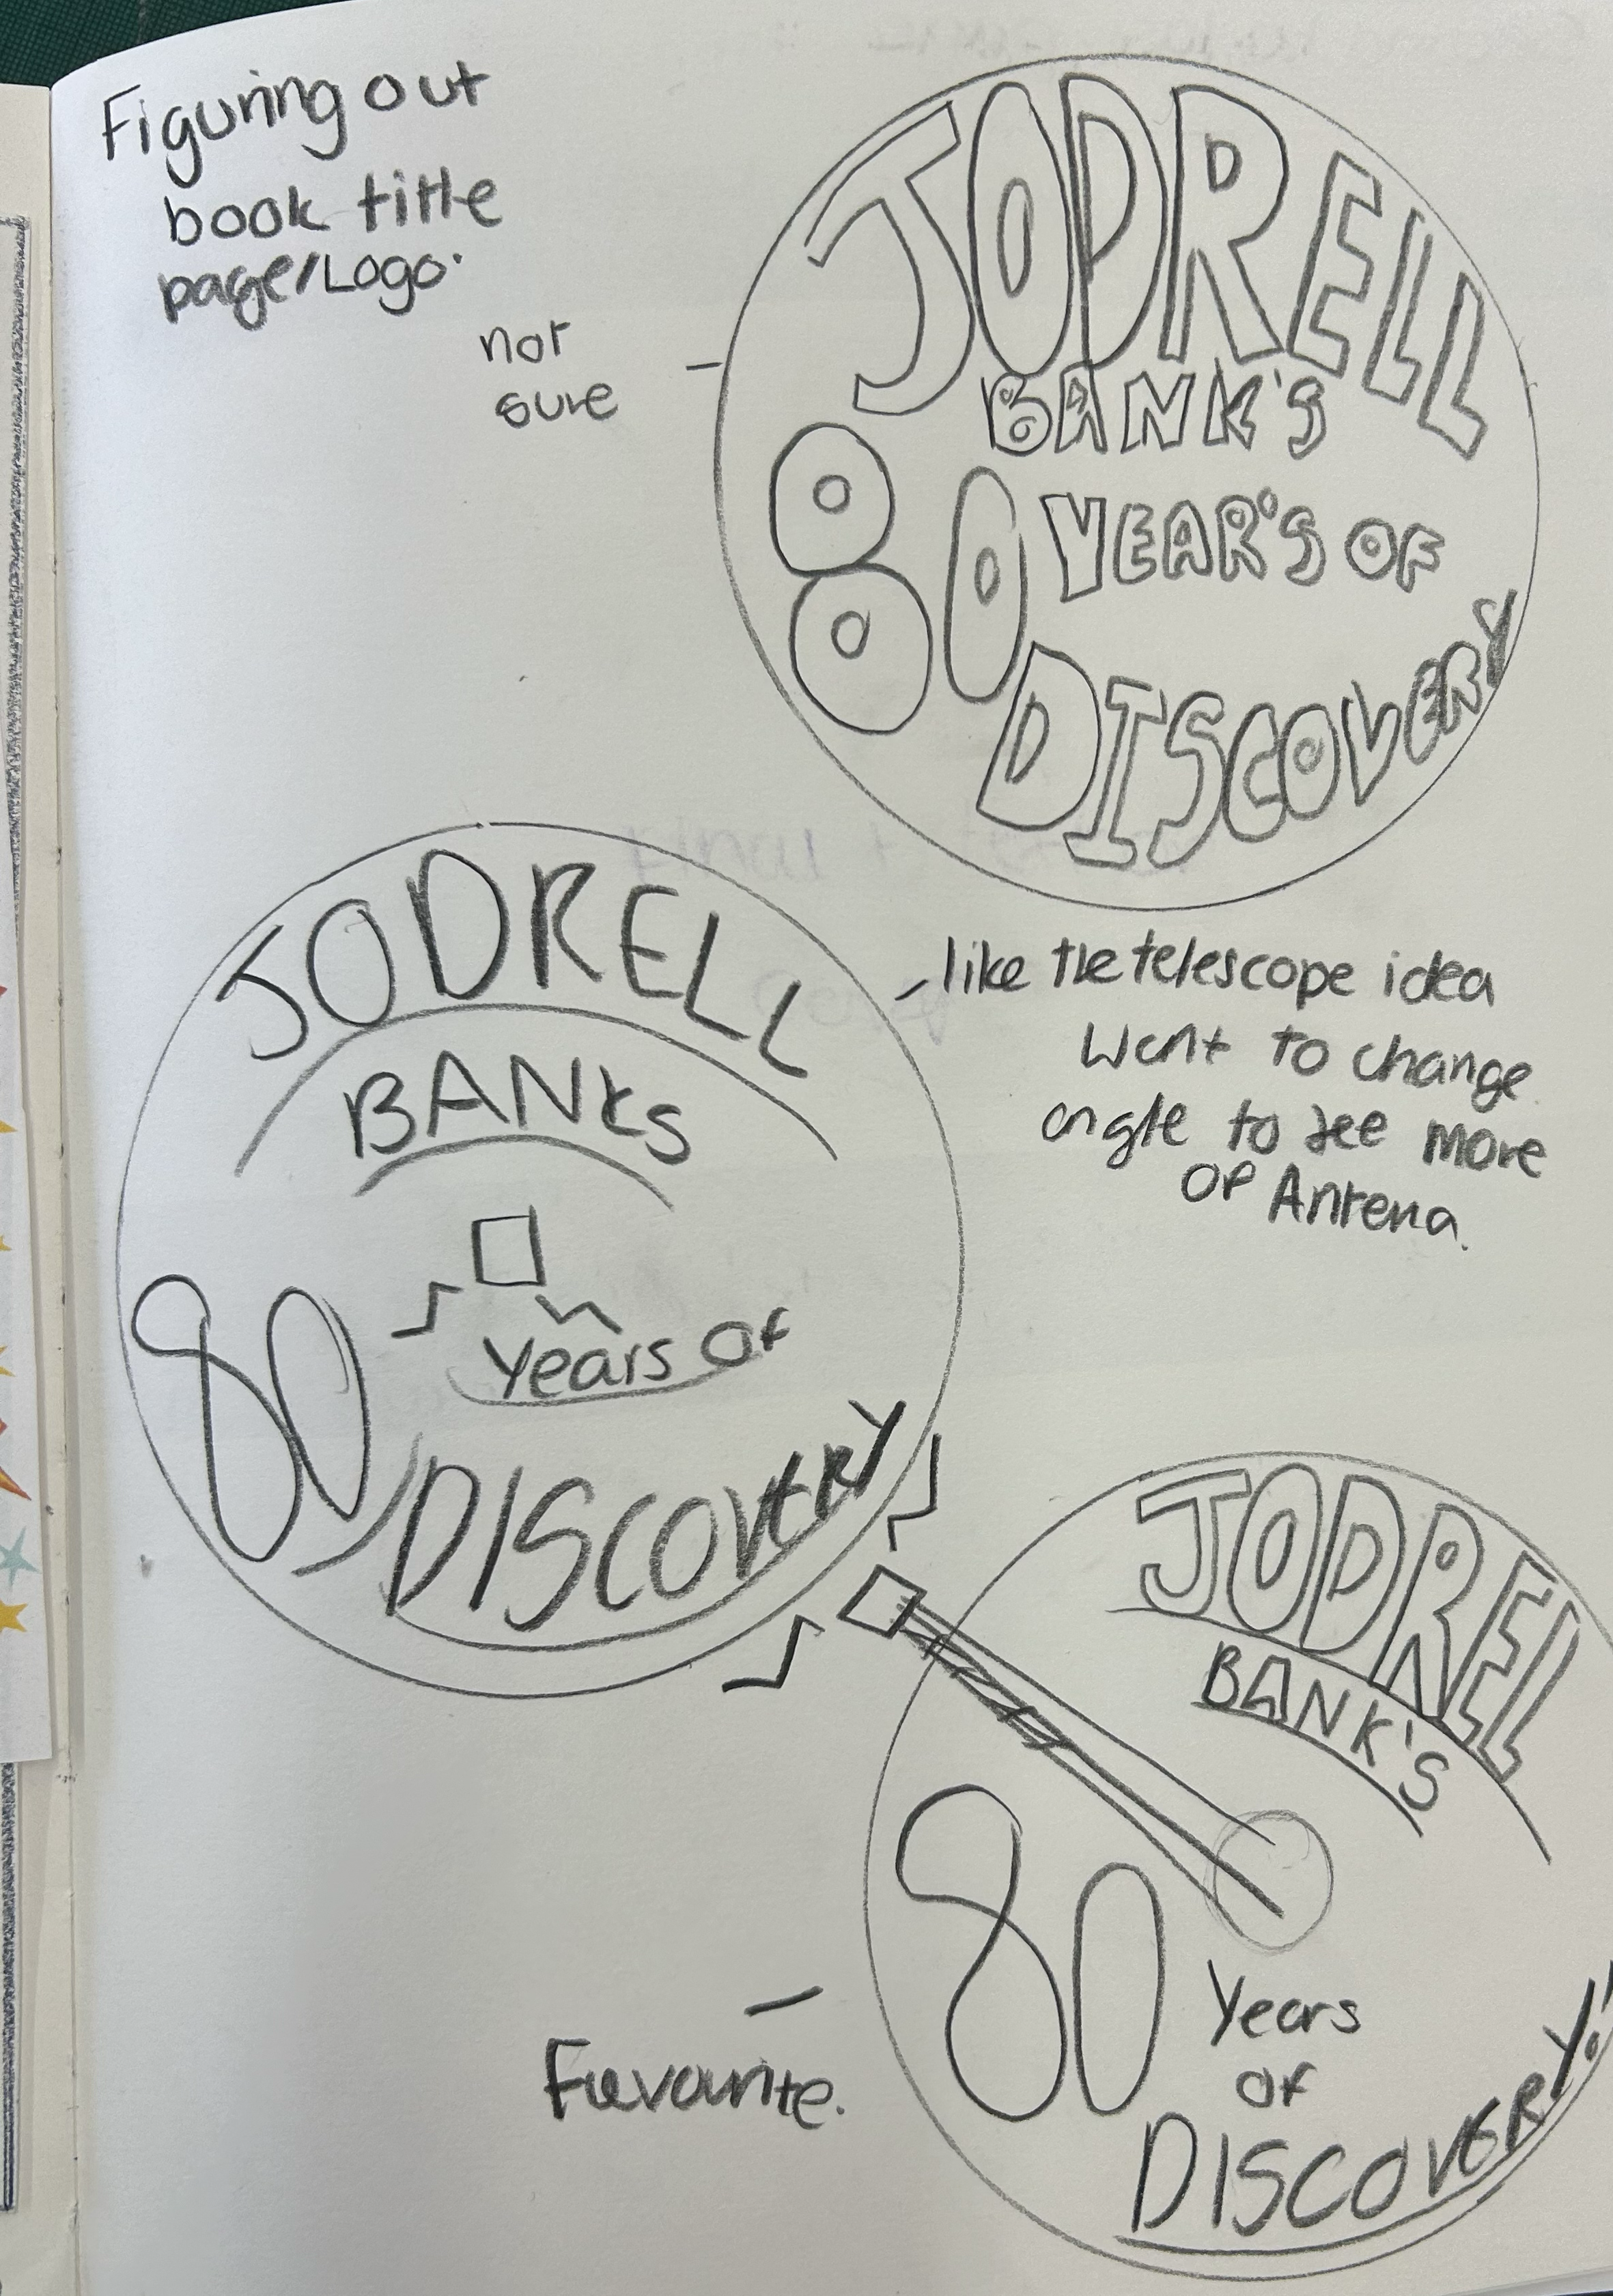 Figuring out
book title
page/Logo.
not
sure
JODRELL
BANK'S
80 YEAR'S OF
DISCOVERY
JODRELL
BANKS
80 Years Of
DISCOVERY
like the telescope idea
Want to change
angle to see more
OF Antena.
JODREL
BANK'S
80 Years
OF
DISCOVERY!
Favourite.